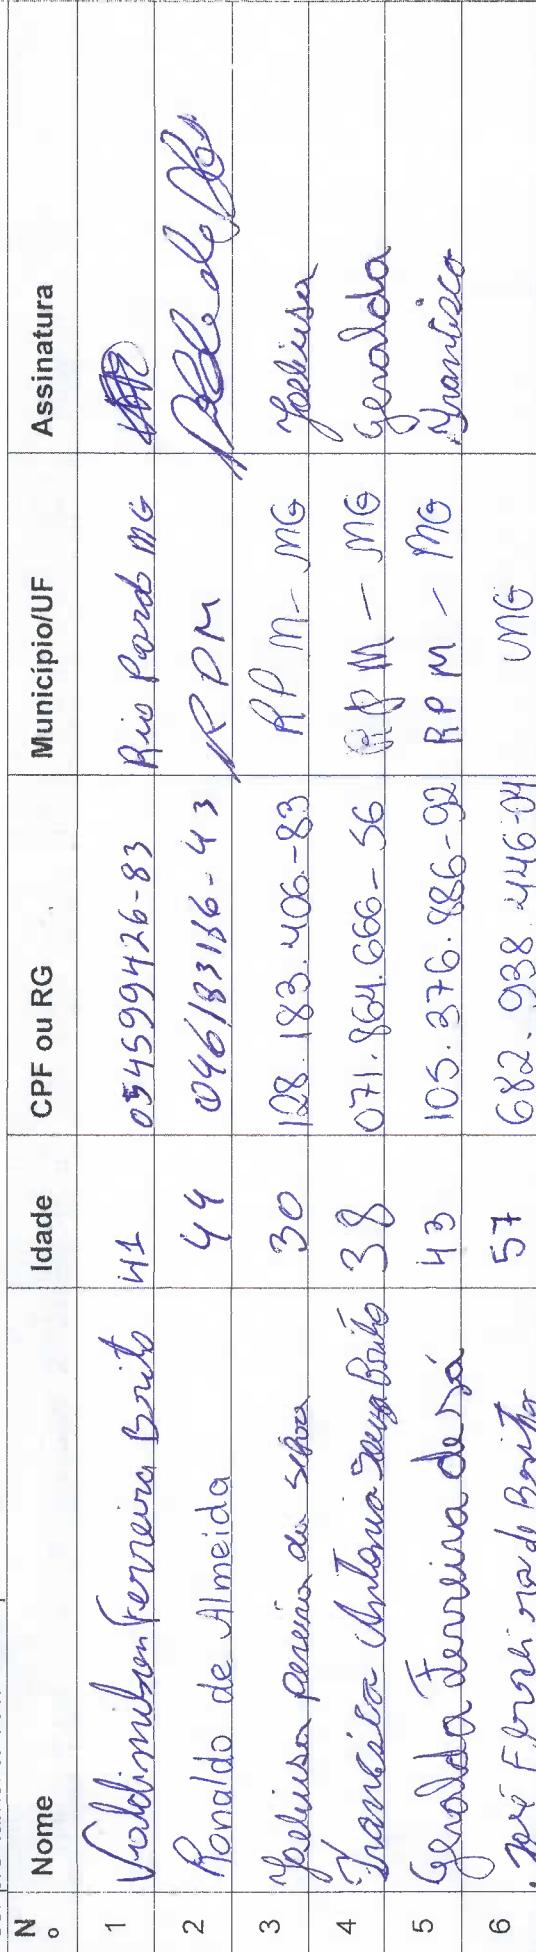 Nº Nome Idade CPF ou RG Município/UF Assinatura
1 Valdimilson Ferreira Brito 41 054599426-83 Rio Pardo MG
2 Ronaldo de Almeida 44 046183136-43 RPM
3 pereira da Silva 30 128.183.406-83 RP M - MG
4 Francisco Antonio Souza Brito 38 071.864.666-56 RPM - MG Geralda
5 Geralda Ferreira de Sá 43 105.376.886-92 RPM - MG Francisco
6 José Ferreira de Brito 57 682.938.446-04 MG